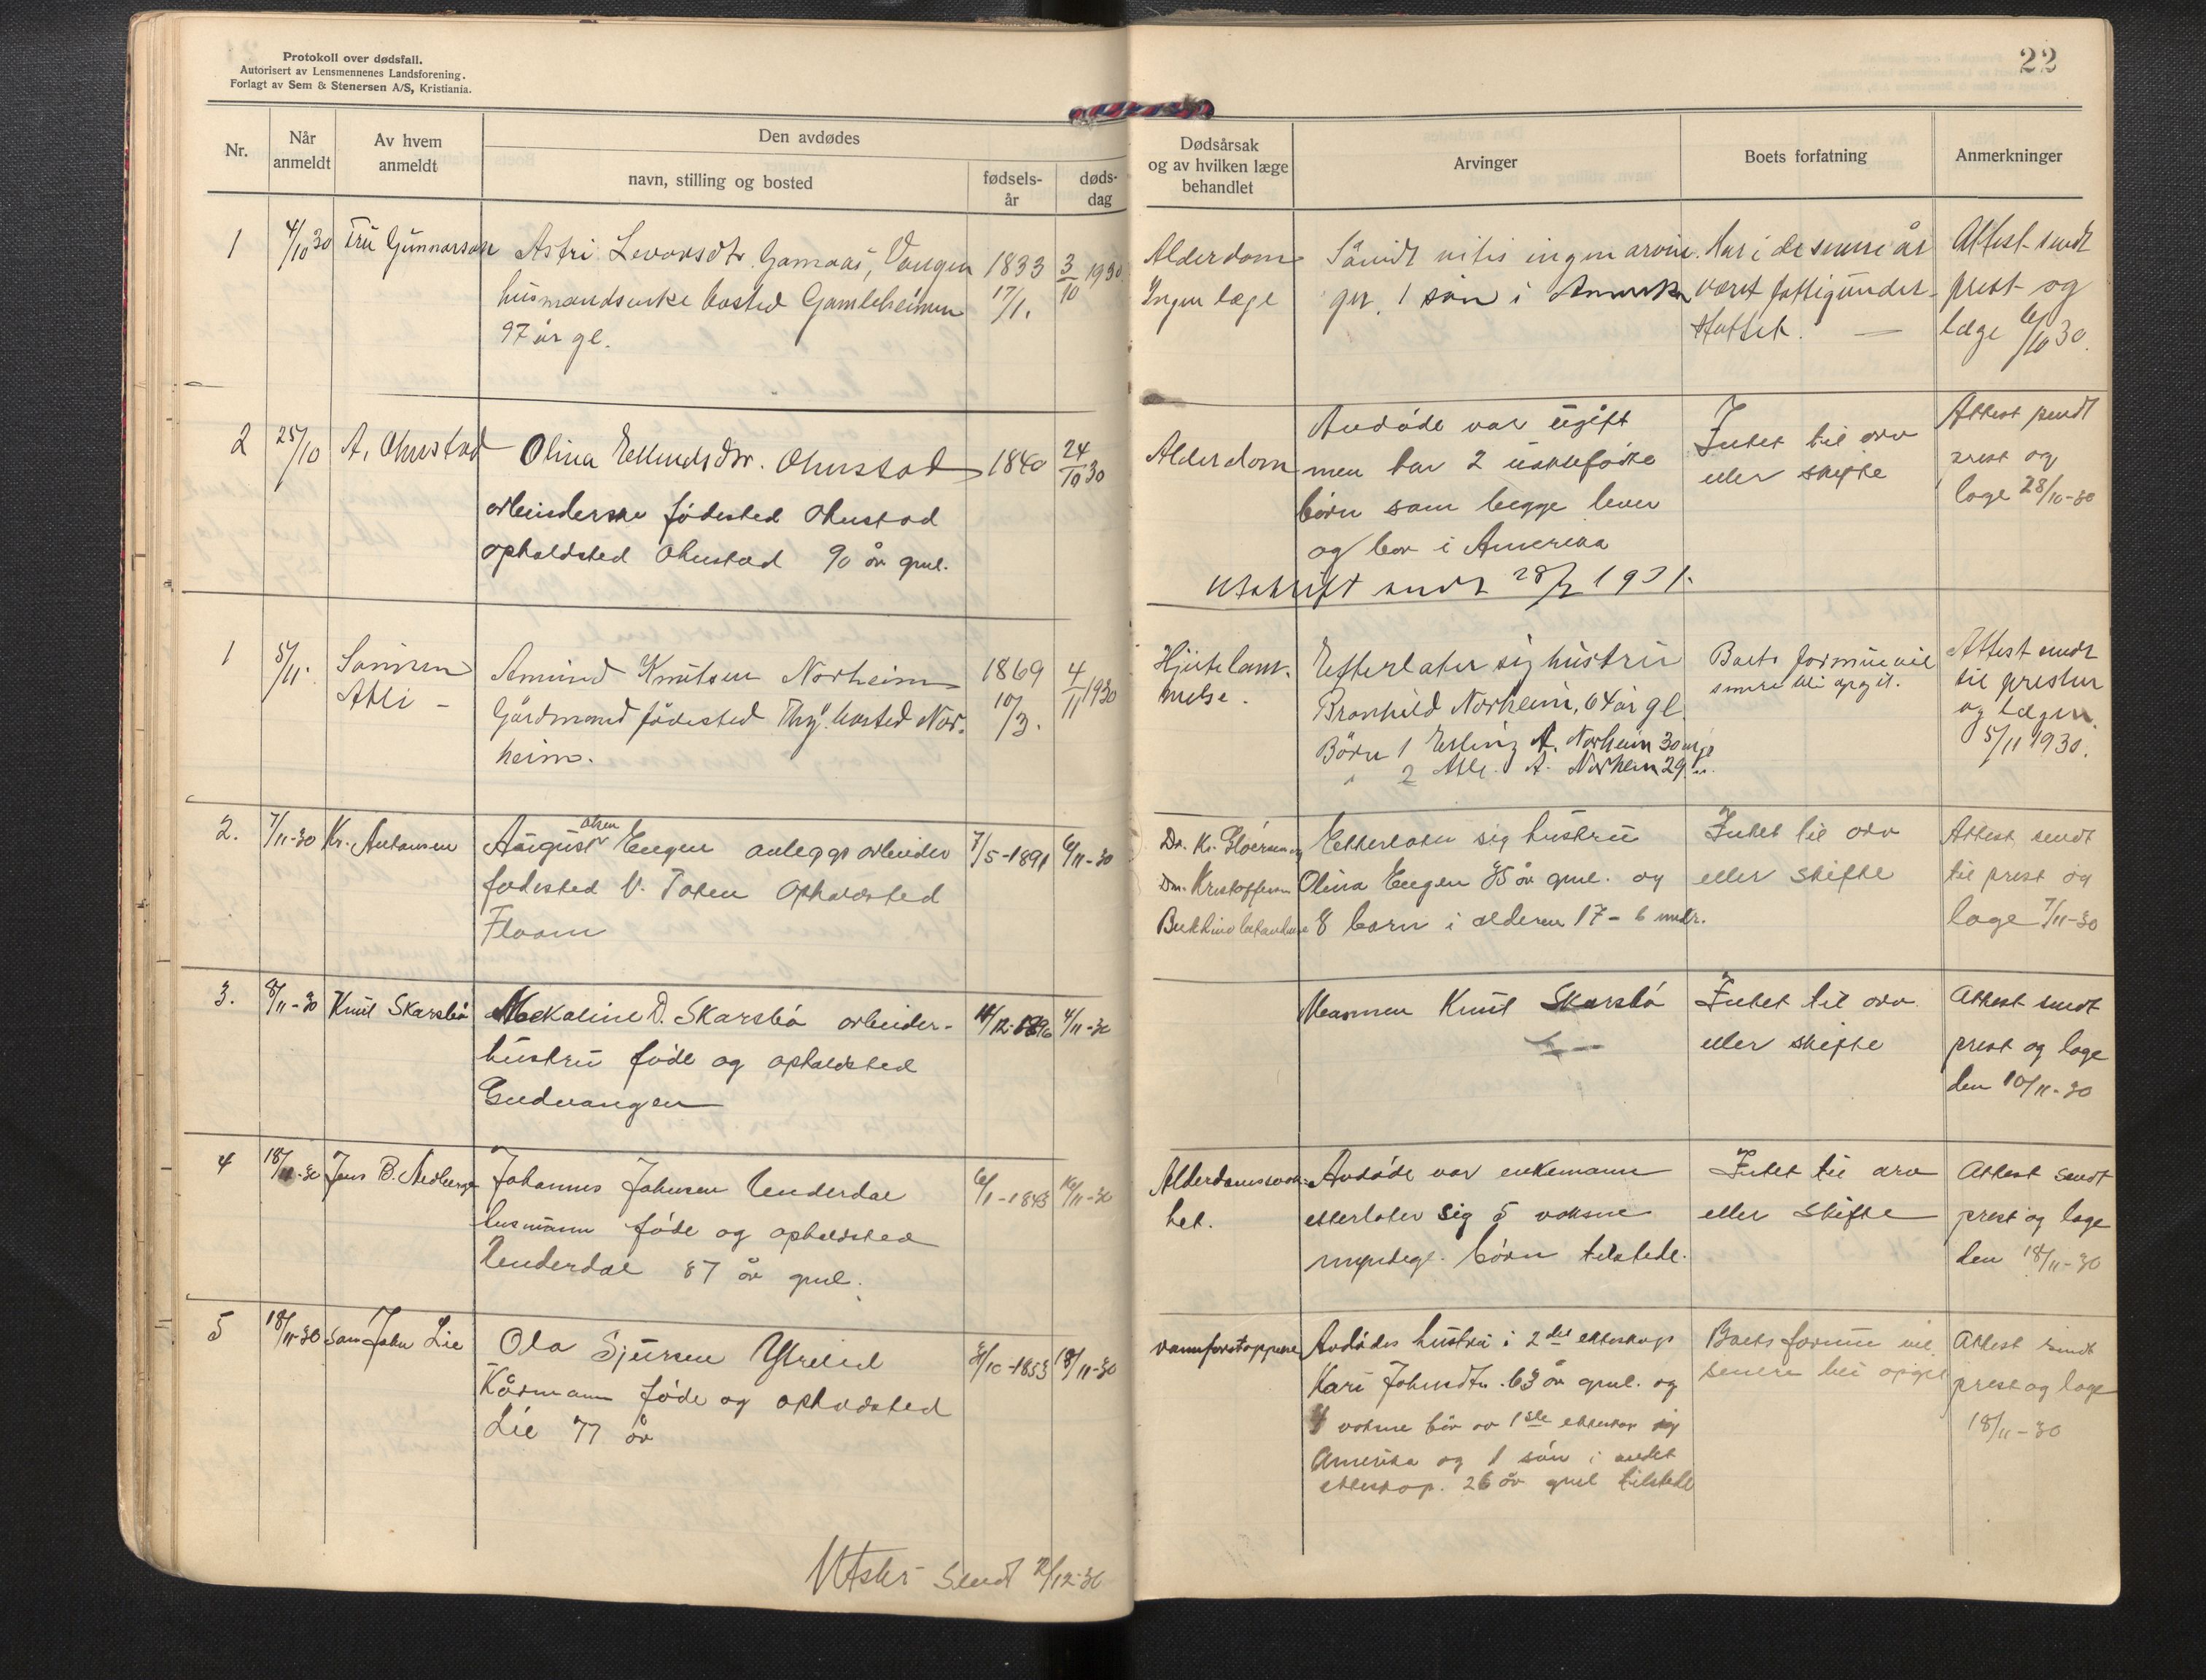 Protokoll over dødsfall.
Autorisert av Lensmennenes Landsforening.
Forlagt av Sem & Stenersen A/S, Kristiania.
22
Nr.
Når anmeldt
Av hvem anmeldt
Den avdødes
navn, stilling og bosted
fødsels-år
døds-dag
Dødsårsak og av hvilken læge behandlet
Arvinger
Boets forfatning
Anmerkninger
1
4/10 30
Fru Gunnarson
Astri Levorsdtr. Gamaas, Vangen
husmandsenke bosted Gamleheimen
97 år gl.
1833
17/1.
3/10 1930
Alderdom
Ingen læge
Såvidt vites ingen arvin-
ger. 1 søn i Amerika
Har i de senere år
været fattigunder-
støttet. —
Attest sendt
prest og
læge 6/10 30.
2
25/10
A. Ohnstad
Olina Ellendsdtr. Ohnstad
arbeiderske fødested Ohnstad
opholdsted Ohnstad 90 år gml.
1840
24/10 30
Alderdom
Avdøde var ugift
men har 2 uektefødte
børn som begge lever
og bor i Amerika
Utskrift sendt 28/2 1931.
Intet til arv
eller skifte
Attest sendt
prest og
læge 28/10-30
1
5/11.
Sønnen
Atli –
Amund Knutsen Norheim
Gårdmand fødested Thy. bosted Nor-
heim.
1869
10/3.
4/11 1930
Hjertelam-
melse.
Efterlater sig hustru
Brønhild Norheim, 64 år gl.
Børn 1 Erling A. Norheim 30 år gl
" 2 Atli A. Norheim 29 "
Boets formue vil
senere bli opgit.
Attest sendt
til presten
og lægen
5/11 1930.
2.
7/11-30
Kr. Antonsen
August Olsen Engen anleggsarbeider
fødested V. Toten Opholdsted
Flaam
7/5-1891
6/11-30
Dr. Kr. Gløersen og
Dr. Kristoffersen
Bekkino behandlere
Etterlater sig hustru
Olina Engen 35 år gml. og
8 barn i alderen 17 – 6 mndr.
Intet til arv
eller skifte
Attest sendt
til prest og
læge 7/11-30
3.
8/11-30
Knut Skarsbø
Mekaline D. Skarsbø arbeider-
hustru føde og opholdsted
Gudvangen
11/12-1896
4/11-30
Mannen Knut Skarsbø
Intet til arv
eller skifte
Attest sendt
prest og læge
den 10/11-30
4
18/11-30
Jens B. Nedberge
Johannes Johnsen Underdal
husmann føde og opholdsted
Underdal 87 år gml.
6/1-1843
16/11-30
Alderdomssvak-
het.
Avdøde var enkemann
etterlater sig 5 voksne
myndige børn tilstede.
Intet til arv
eller skifte
Attest sendt
prest og læge
den 18/11-30
5
18/11-30
søn John Lie
Ola Sjursen Ytrelid
Kårmann føde og opholdsted
Lie 77 år
31/10-1853
18/11-30
vannforstoppelse
Avdødes hustru i 2det ekteskap
Kari Johnsdtr. 63 år gml. og
4 voksne bør av 1ste ekteskap
Amerika og 1 søn i andet
ekteskap. 26 år gml tilstede
Boets formue vil
senere bli opgit
Attest sendt
prest og læge
18/11-30
Utskr sendt 2/12-30